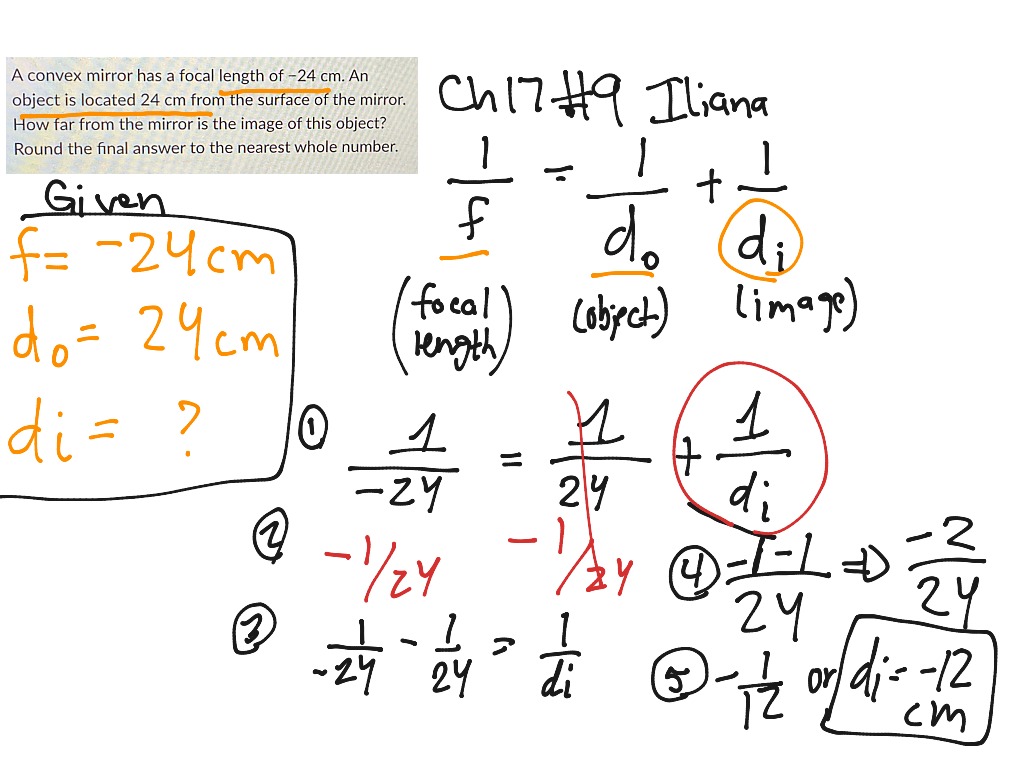 A convex mirror has a focal length of −24 cm. An
object is located 24 cm from the surface of the mirror.
How far from the mirror is the image of this object?
Round the final answer to the nearest whole number.
Ch17 #9 Iliana
1/f = 1/do + 1/di
(focal length) (object) (image)
Given
f= -24cm
do= 24cm
di= ?
① 1/-24 = 1/24 + 1/di
② -1/24 -1/24
③ 1/-24 - 1/24 = 1/di
④ -1-1/24 ⇒ -2/24
⑤ -1/12 or di= -12 cm